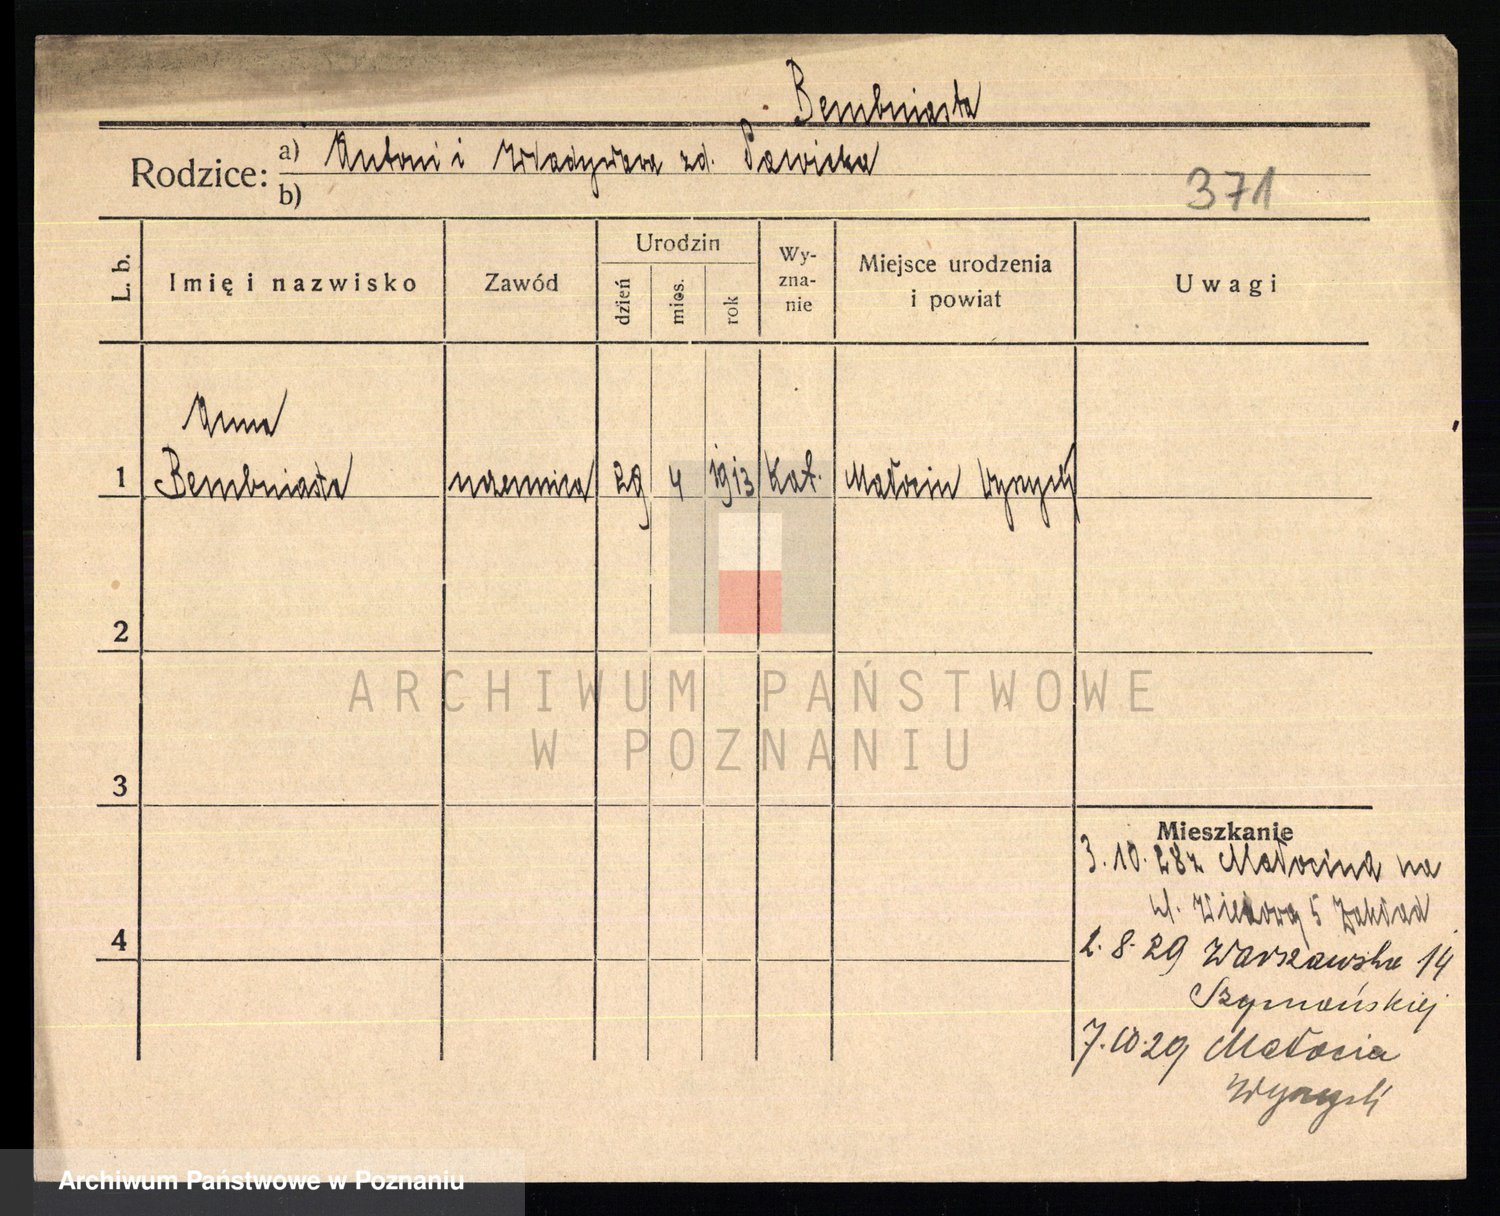 Bembnista
Rodzice:
a) Antoni i Władysława zd. Sawicka
b)
371
L. b.
Imię i nazwisko
Zawód
Urodzin
dzień
mies.
rok
Wy-
zna-
nie
Miejsce urodzenia
i powiat
Uwagi
Anna
1 Bembnista uczennica 29 4 1913 Kat. Małocin Wyrzysk
2
3
4
Mieszkanie
3.10.28 z Małocina na
ul. 5 Zakład
2.8.29 Warszawska 14
Szymańskiej
7.10.29 Małocin
Wyrzysk
ARCHIWUM PAŃSTWOWE
W POZNANIU
Archiwum Państwowe w Poznaniu